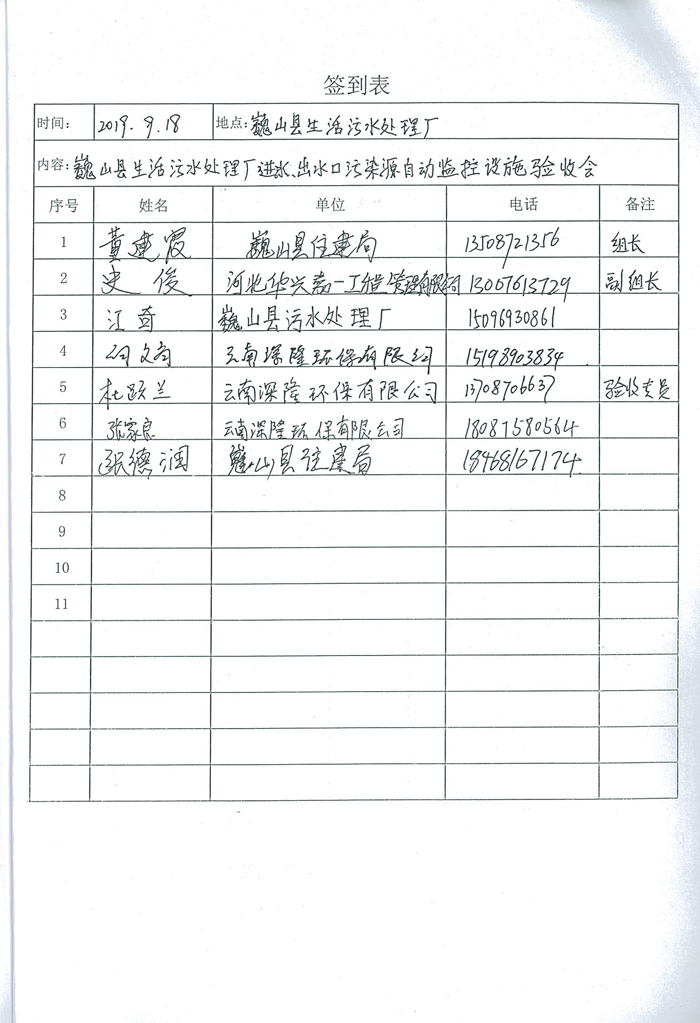 签到表
时间： 2019.9.18 地点：巍山县生活污水处理厂
内容：巍山县生活污水处理厂进水、出水口污染源自动监控设施验收会
序号 姓名 单位 电话 备注
1 黄建霞 巍山县住建局 13508721356 组长
2 史俊 河北华兴嘉一工程管理有限公司 13007613729 副组长
3 江奇 巍山县污水处理厂 15096930861
4 云南深隆环保有限公司 15198903834
5 杜跃兰 云南深隆环保有限公司 13708706637 验收专员
6 张家良 云南深隆环保有限公司 18087580564
7 张德润 巍山县住建局 18468167174
8
9
10
11